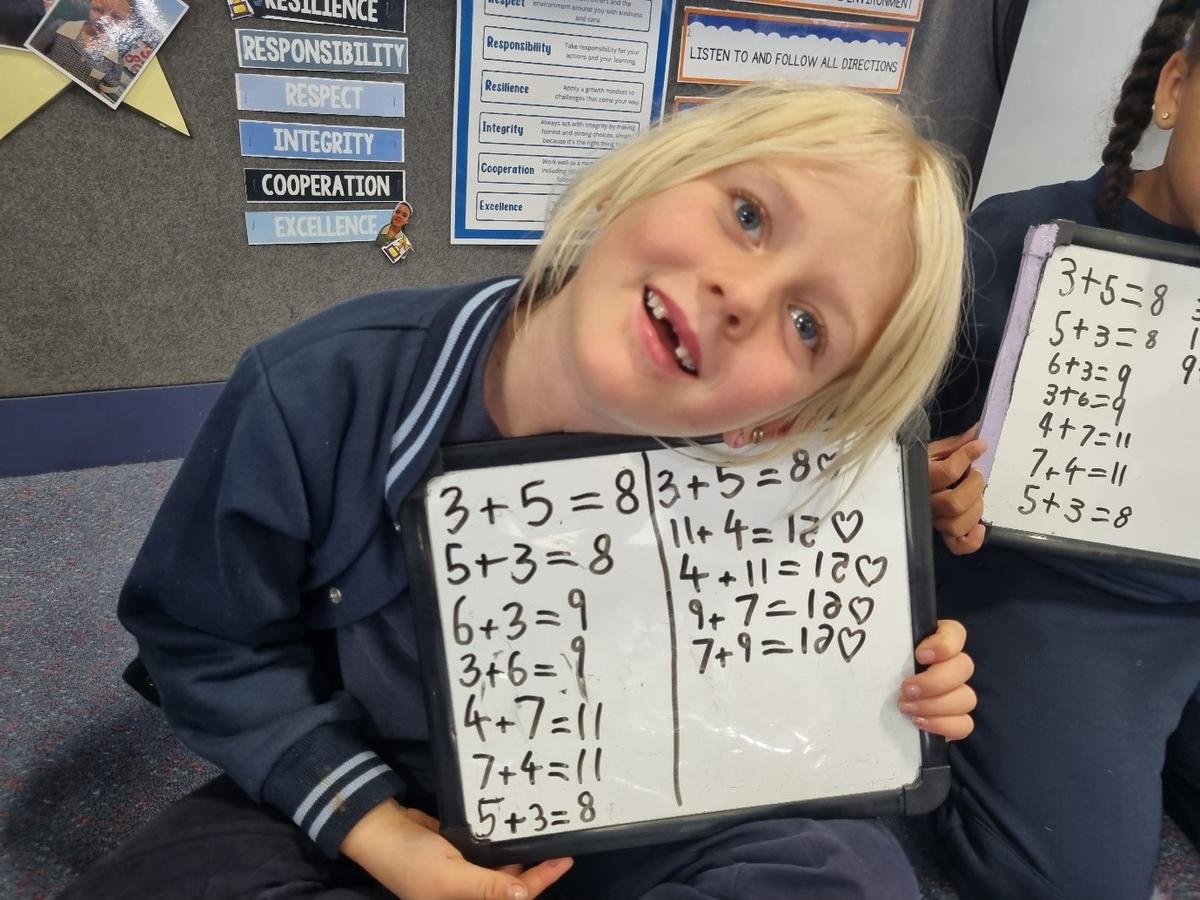 RESILIENCE
RESPONSIBILITY
RESPECT
INTEGRITY
COOPERATION
EXCELLENCE
Respect
others and the
environment around you with kindness
and care.
Responsibility
Take responsibility for your
actions and your learning.
Resilience
Apply a growth mindset to
challenges that come your way.
Integrity
Always act with integrity by making
honest and strong choices, simply
because it's the right thing to
Cooperation
Work well as a
including
Excellence
ENVIRONMENT
LISTEN TO AND FOLLOW ALL DIRECTIONS
3+5=8
5+3=8
6+3=9
3+6=9
4+7=11
7+4=11
5+3=8
3+5=8♡
11+4=15♡
4+11=15♡
9+7=16♡
7+9=16♡
3+5=8
5+3=8
6+3=9
3+6=9
4+7=11
7+4=11
5+3=8